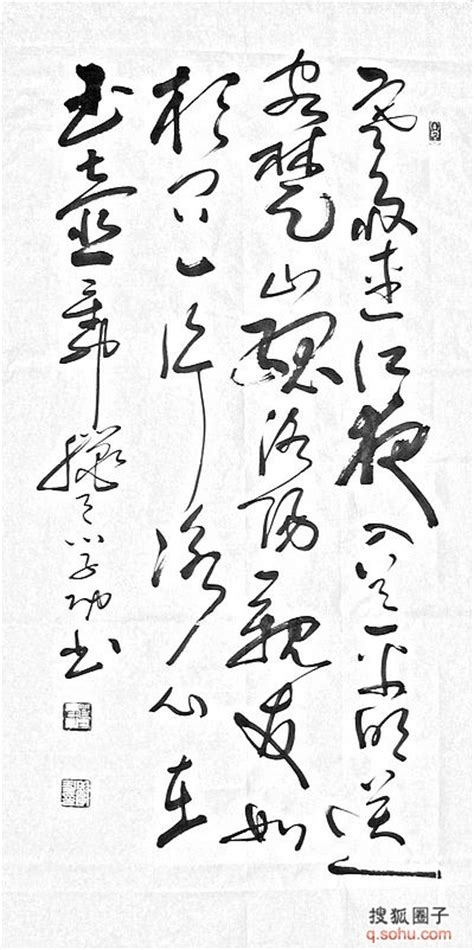 寒雨連江夜入吴平明送
客楚山孤洛陽親友如
相问一片冰心在
玉壺 书
搜狐圈子
q.sohu.com